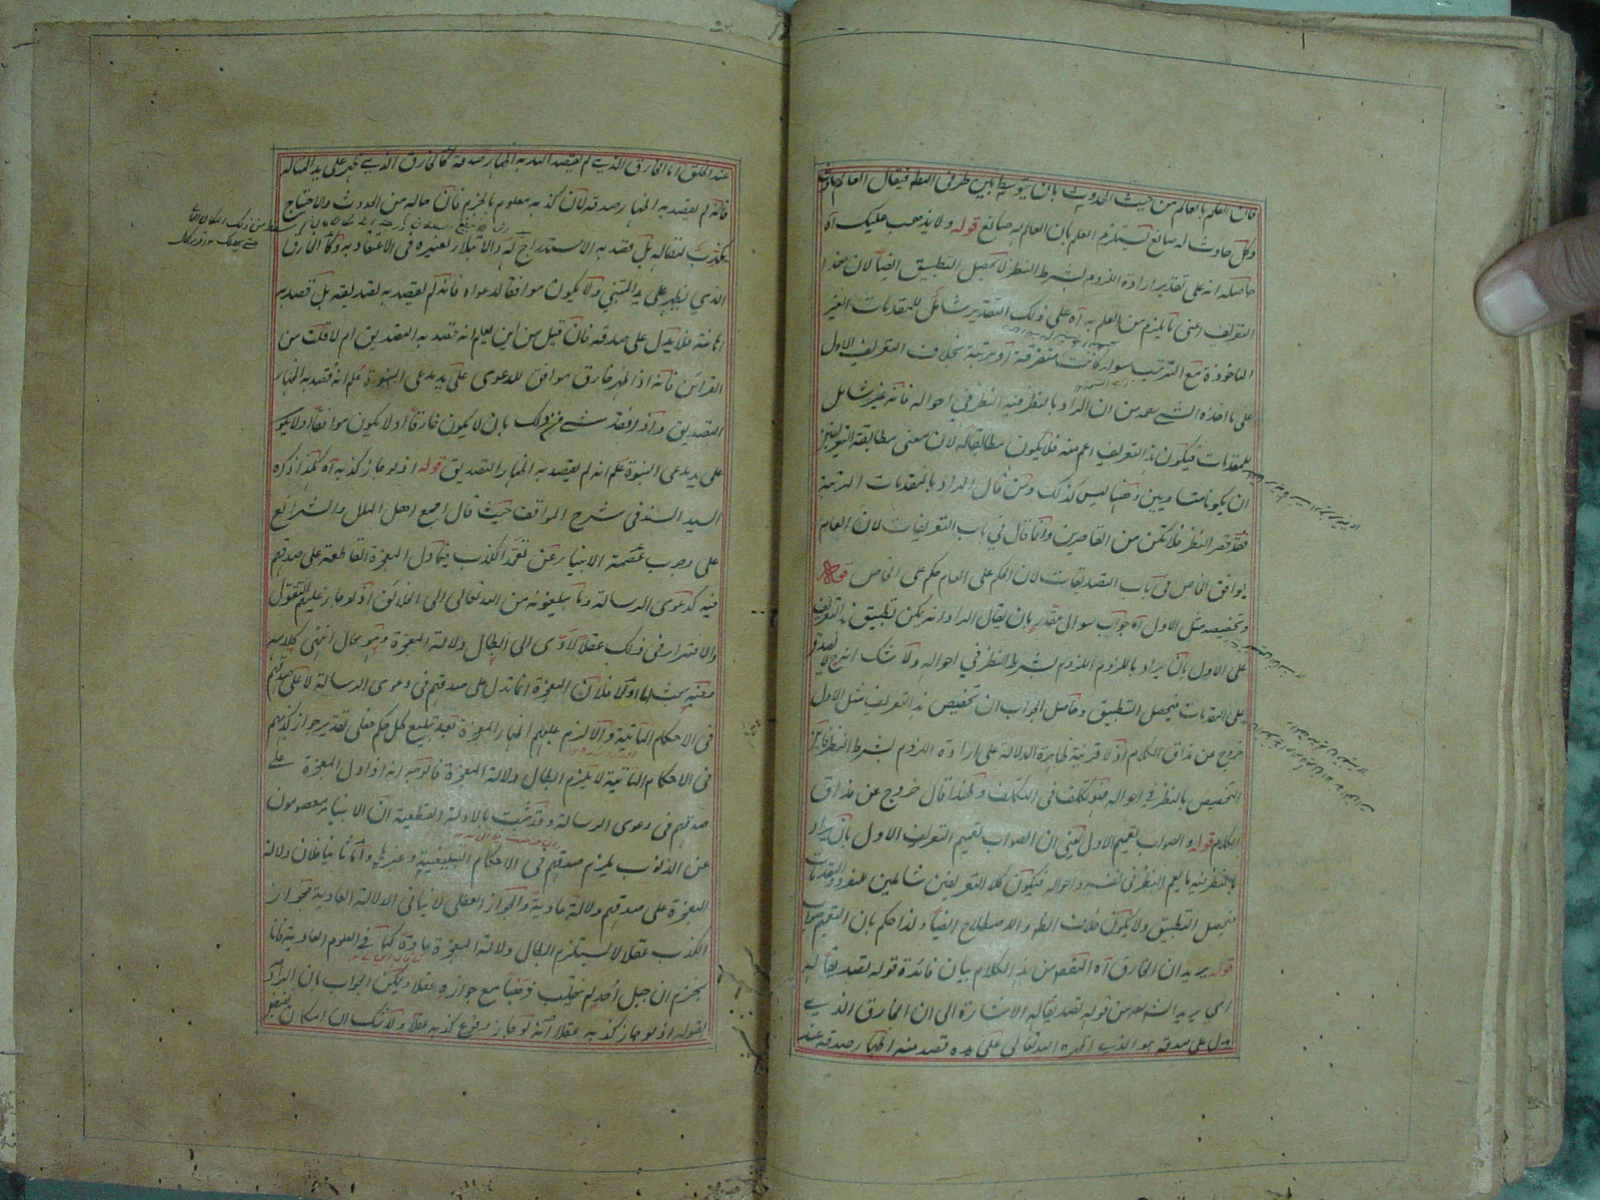 فان العلم بالعالم من حيث الحدوث بان يتوسط بين طرفى النظر فيقال العالم حادث
وكل حادث له صانع يستلزم العلم بان العالم له صانع قوله ولا يذهب عليك آه
حاصله انه على تقدير ارادة اللزوم بشرط النظر لا يحصل التطبيق ايضا لان هذا
التعريف اعنى ما يلزم من العلم به آه على ذلك التقدير شامل للمقدمات الغير
الماخوذة مع الترتيب سواء كانت متفرقة او مرتبة بخلاف التعريف الاول
على ما اخذه الشارح من ان المراد بالنظر فيه النظر في احواله فانه غير شامل
للمقدمات فيكون هذا التعريف اعم منه فلا يكون مطابقا له لان معنى مطابقة التعريفين
ان يكونا متساويين وههنا ليس كذلك ومن قال المراد بالمقدمات المرتبة
فقد قصر النظر فلا تكن من القاصرين وانما قال في باب التعريفات لان العام
يوافق الخاص في باب التصديقات لان الحكم على العام حكم على الخاص قوله
وتخصيصه مثل الاول آه جواب سوال مقدر بان يقال المراد انه يمكن تطبيق هذا التعريف
على الاول بان يراد باللزوم اللزوم بشرط النظر في احواله ولا شك انه لا يصدق
على المقدمات فيحصل التطبيق وحاصل الجواب ان تخصيص هذا التعريف مثل الاول
خروج عن مذاق الكلام اذ لا قرينة ظاهرة الدلالة على ارادة اللزوم بشرط النظر
التخصيص بالنظر في احواله تكلف في التكلف ولهذا قال خروج عن مذاق
الكلام قوله والصواب تعميم الاول يعنى ان الصواب تعميم التعريف الاول بان يراد
بالنظر فيه ما يعم النظر في نفسه واحواله فيكون كلا التعريفين شاملين للمفرد والمقدمات
فيحصل التطبيق ولا يكون خلاف الظاهر والاصطلاح ايضا ولذا حكم بان التعميم صواب
قوله يريد ان الخارق آه المقصود من هذا الكلام بيان فائدة قوله تصديقا له
اى يريد الشارح من قوله تصديقا له الاشارة الى ان الخارق الذي
دل على صدقه هو الذي اظهره الله تعالى على يده قصد منه اظهار صدقه عند
عند الخلق اما الخارق الذي لم يقصد الله به اظهار صدقه كالخارق الذي ظهر على يد المتاله
فانه لم يقصد به اظهار صدقه لان كذبه معلوم بالجزم فان حاله من الحدوث والاحتياج
يكذب لمقاله بل قصد به الاستدراج له والابتلاء لغيره في الاعتقاد به وكالخارق
الذي يظهر على يد المتنبي ولا يكون موافقا لدعواه فانه لم يقصد به تصديقه بل قصد به
اهانته فلا يدل على صدقه فان قيل من اين يعلم انه قصد به التصديق ام لا قلت من
القرائن فانه اذا ظهر خارق موافق للدعوى على يد مدعى النبوة علم انه قصد به اظهار
التصديق واذا فقد شئ من ذلك بان لا يكون خارقا او لا يكون موافقا او لا يكون
على يد مدعى النبوة علم انه لم يقصد به اظهار التصديق قوله اذ لو جاز كذبه آه هكذا ذكره
السيد السند في شرح المواقف حيث قال اجمع اهل الملل والشرائع
على وجوب عصمة الانبياء عن تعمد الكذب فيما دل المعجزة القاطعة على صدقهم
فيه كدعوى الرسالة وما يبلغونه من الله تعالى الى الخلائق اذ لو جاز عليهم التقول
والافتراء في ذلك عقلا لادى الى ابطال دلالة المعجزة وهو محال انتهى كلامه
ففيه بحث اما اولا فلان المعجزة انما تدل على صدقهم في دعوى الرسالة لا على صدقهم
في الاحكام الباقية والا لزم عليهم اظهار المعجزة بعد تبليغ كل حكم فعلى تقدير جواز كذبهم
في الاحكام الباقية لا يلزم ابطال دلالة المعجزة فالوجه انه اذا دل المعجزة على
صدقهم في دعوى الرسالة وقد ثبت بالادلة القطعية ان الانبياء معصومون
عن الذنوب يلزم صدقهم في الاحكام التبليغية وغيرها واما ثانيا فلان دلالة
المعجزة على صدقهم دلالة عادية والجواز العقلى لا ينافى الدلالة العادية فجواز
الكذب عقلا لا يستلزم ابطال دلالة المعجزة عادة كما في العلوم العادية فانا
نجزم ان جبل احد لم ينقلب ذهبا مع جوازه عقلا ويمكن الجواب بان المراد
بقوله اذ لو جاز كذبه عقلا انه لو جاز وقوع كذبه عقلا ولا شك ان امكان